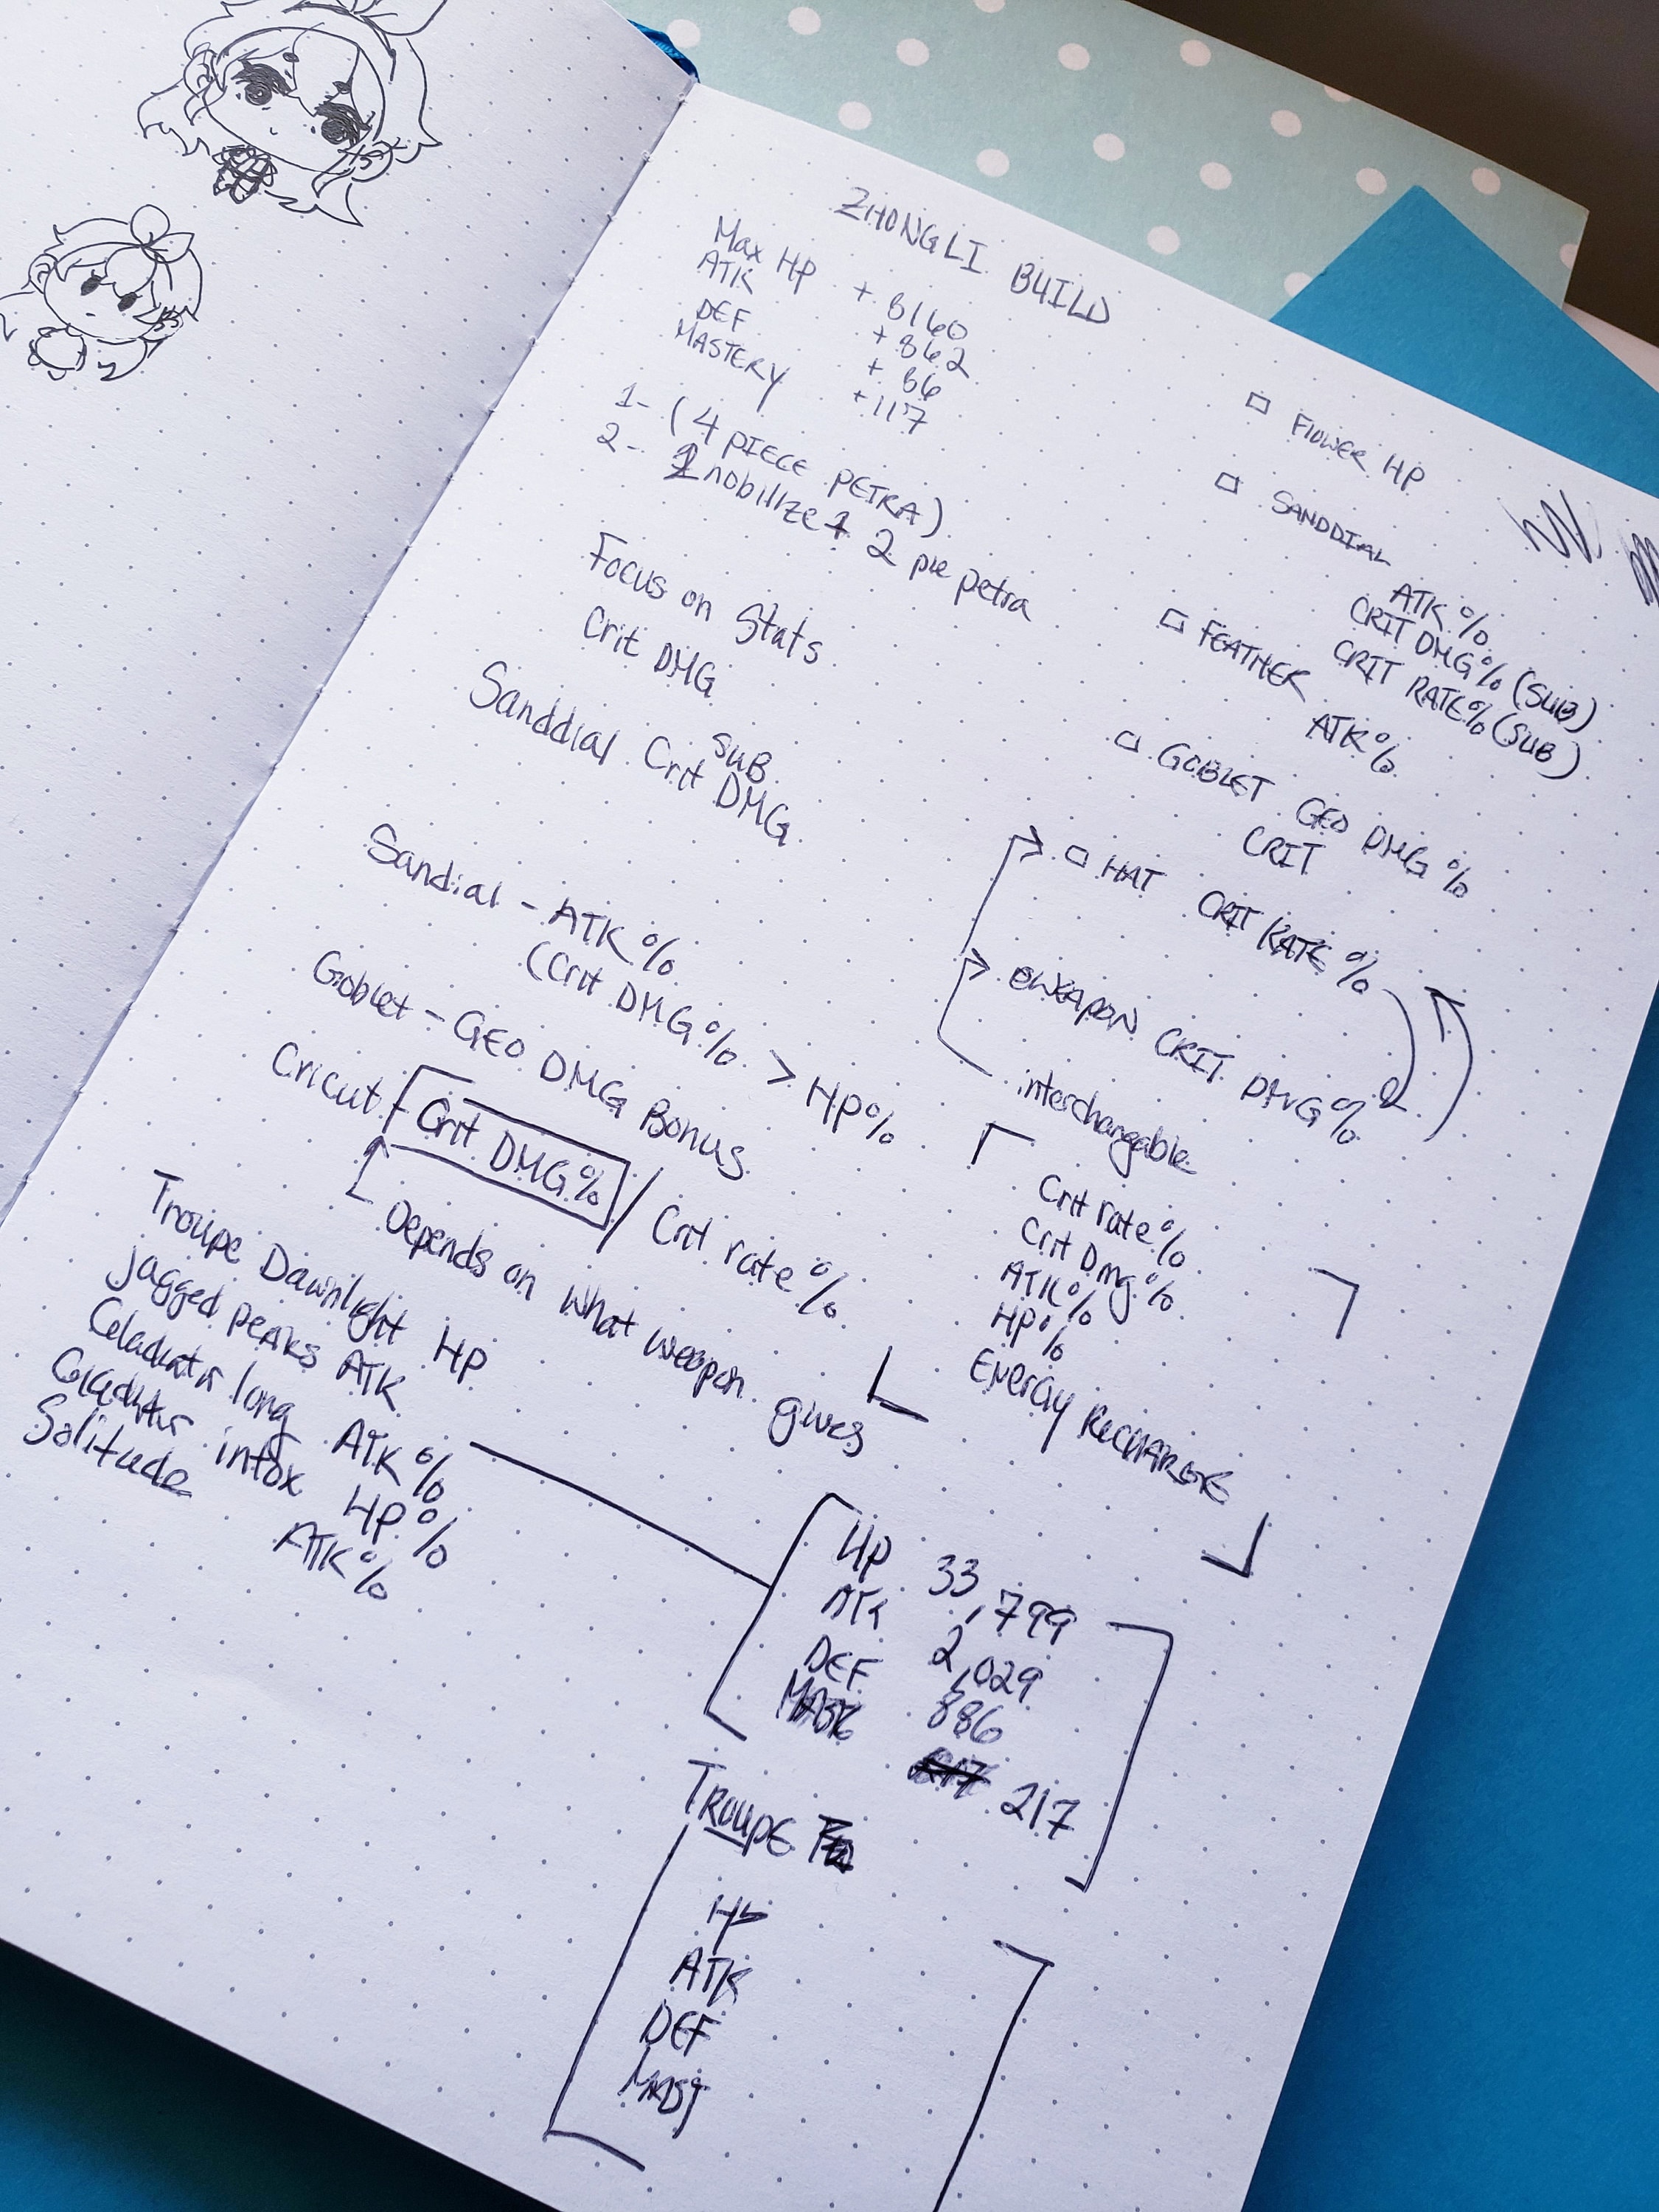 ZHONGLI BUILD
Max HP + 8160
ATK + 862
DEF + 86
MASTERY + 117
1- (4 PIECE PETRA)
2- 2 nobilize + 2 pie petra
Focus on Stats
Crit DMG
Sanddial SUB Crit DMG
Sandial - ATK %
(Crit DMG % > HP%
Goblet - GEO DMG Bonus
Cricut - Crit DMG% / Crit rate %
Depends on what weapon gives
Troupe Dawnlight HP
jagged peaks ATK
long ATK %
intox HP %
Solitude ATK %
□ FlOWER HP
□ SANDDIAL
ATK %
CRIT DMG% (SUB)
CRIT RATE% (SUB)
□ FEATHER
ATK%
□ GOBLET GEO DMG %
CRIT
□ HAT CRIT RATE %
CRIT DMG %
interchangable
Crit rate %
Crit Dmg %
ATK %
HP %
ENERGY RECHARGE
HP 33,799
ATK 2,029
DEF 886
217
TROUPE
HP
ATK
DEF